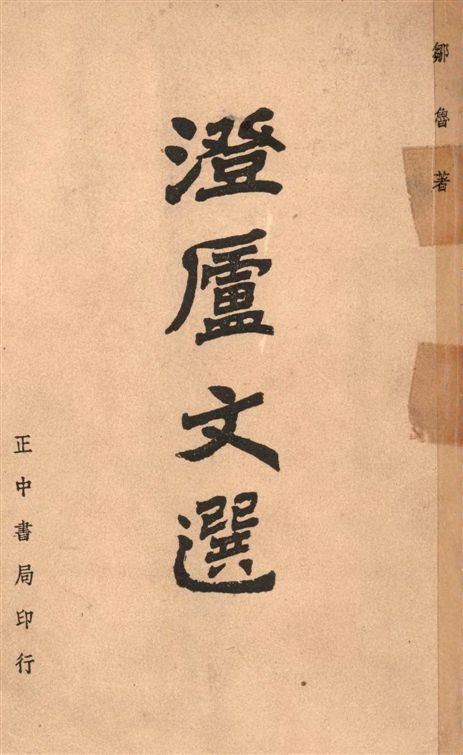 鄒魯著
澄廬文選
正中書局印行